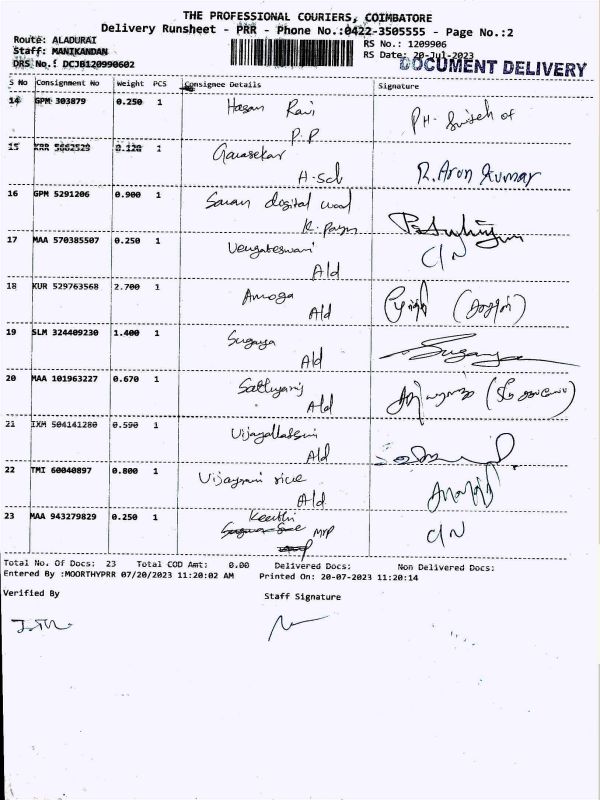 THE PROFESSIONAL COURIERS, COIMBATORE
Delivery Runsheet - PRR - Phone No.:0422-3505555 - Page No.:2
Route: ALADURAI
RS No.: 1209906
Staff: MANIKANDAN
RS Date: 20-Jul-2023
DRS No.: DCJB120990602
DOCUMENT DELIVERY
S No Consignment No Weight PCS Consignee Details Signature
14 GPM 303879 0.250 1 Hasan Ravi
P.P
PH- Switch of
15 KRR 5662529 0.120 1 Gunasekar
H-Sch
R. Arun Kumar
16 GPM 5291206 0.900 1 Saran digital
17 MAA 570385507 0.250 1 Vengateswari
Ald
C/N
18 KUR 529763568 2.700 1 Amoga
Ald
19 SLM 324409230 1.400 1 Suganya
Ald
Suganya
20 MAA 101963227 0.670 1
Ald
21 IXM 504141280 0.590 1
Ald
22 TMI 60040897 0.800 1
Ald
23 MAA 943279829 0.250 1 Keerthi
C/N
Total No. Of Docs: 23 Total COD Amt: 0.00 Delivered Docs: Non Delivered Docs:
Entered By :MOORTHYPRR 07/20/2023 11:20:02 AM Printed On: 20-07-2023 11:20:14
Verified By Staff Signature